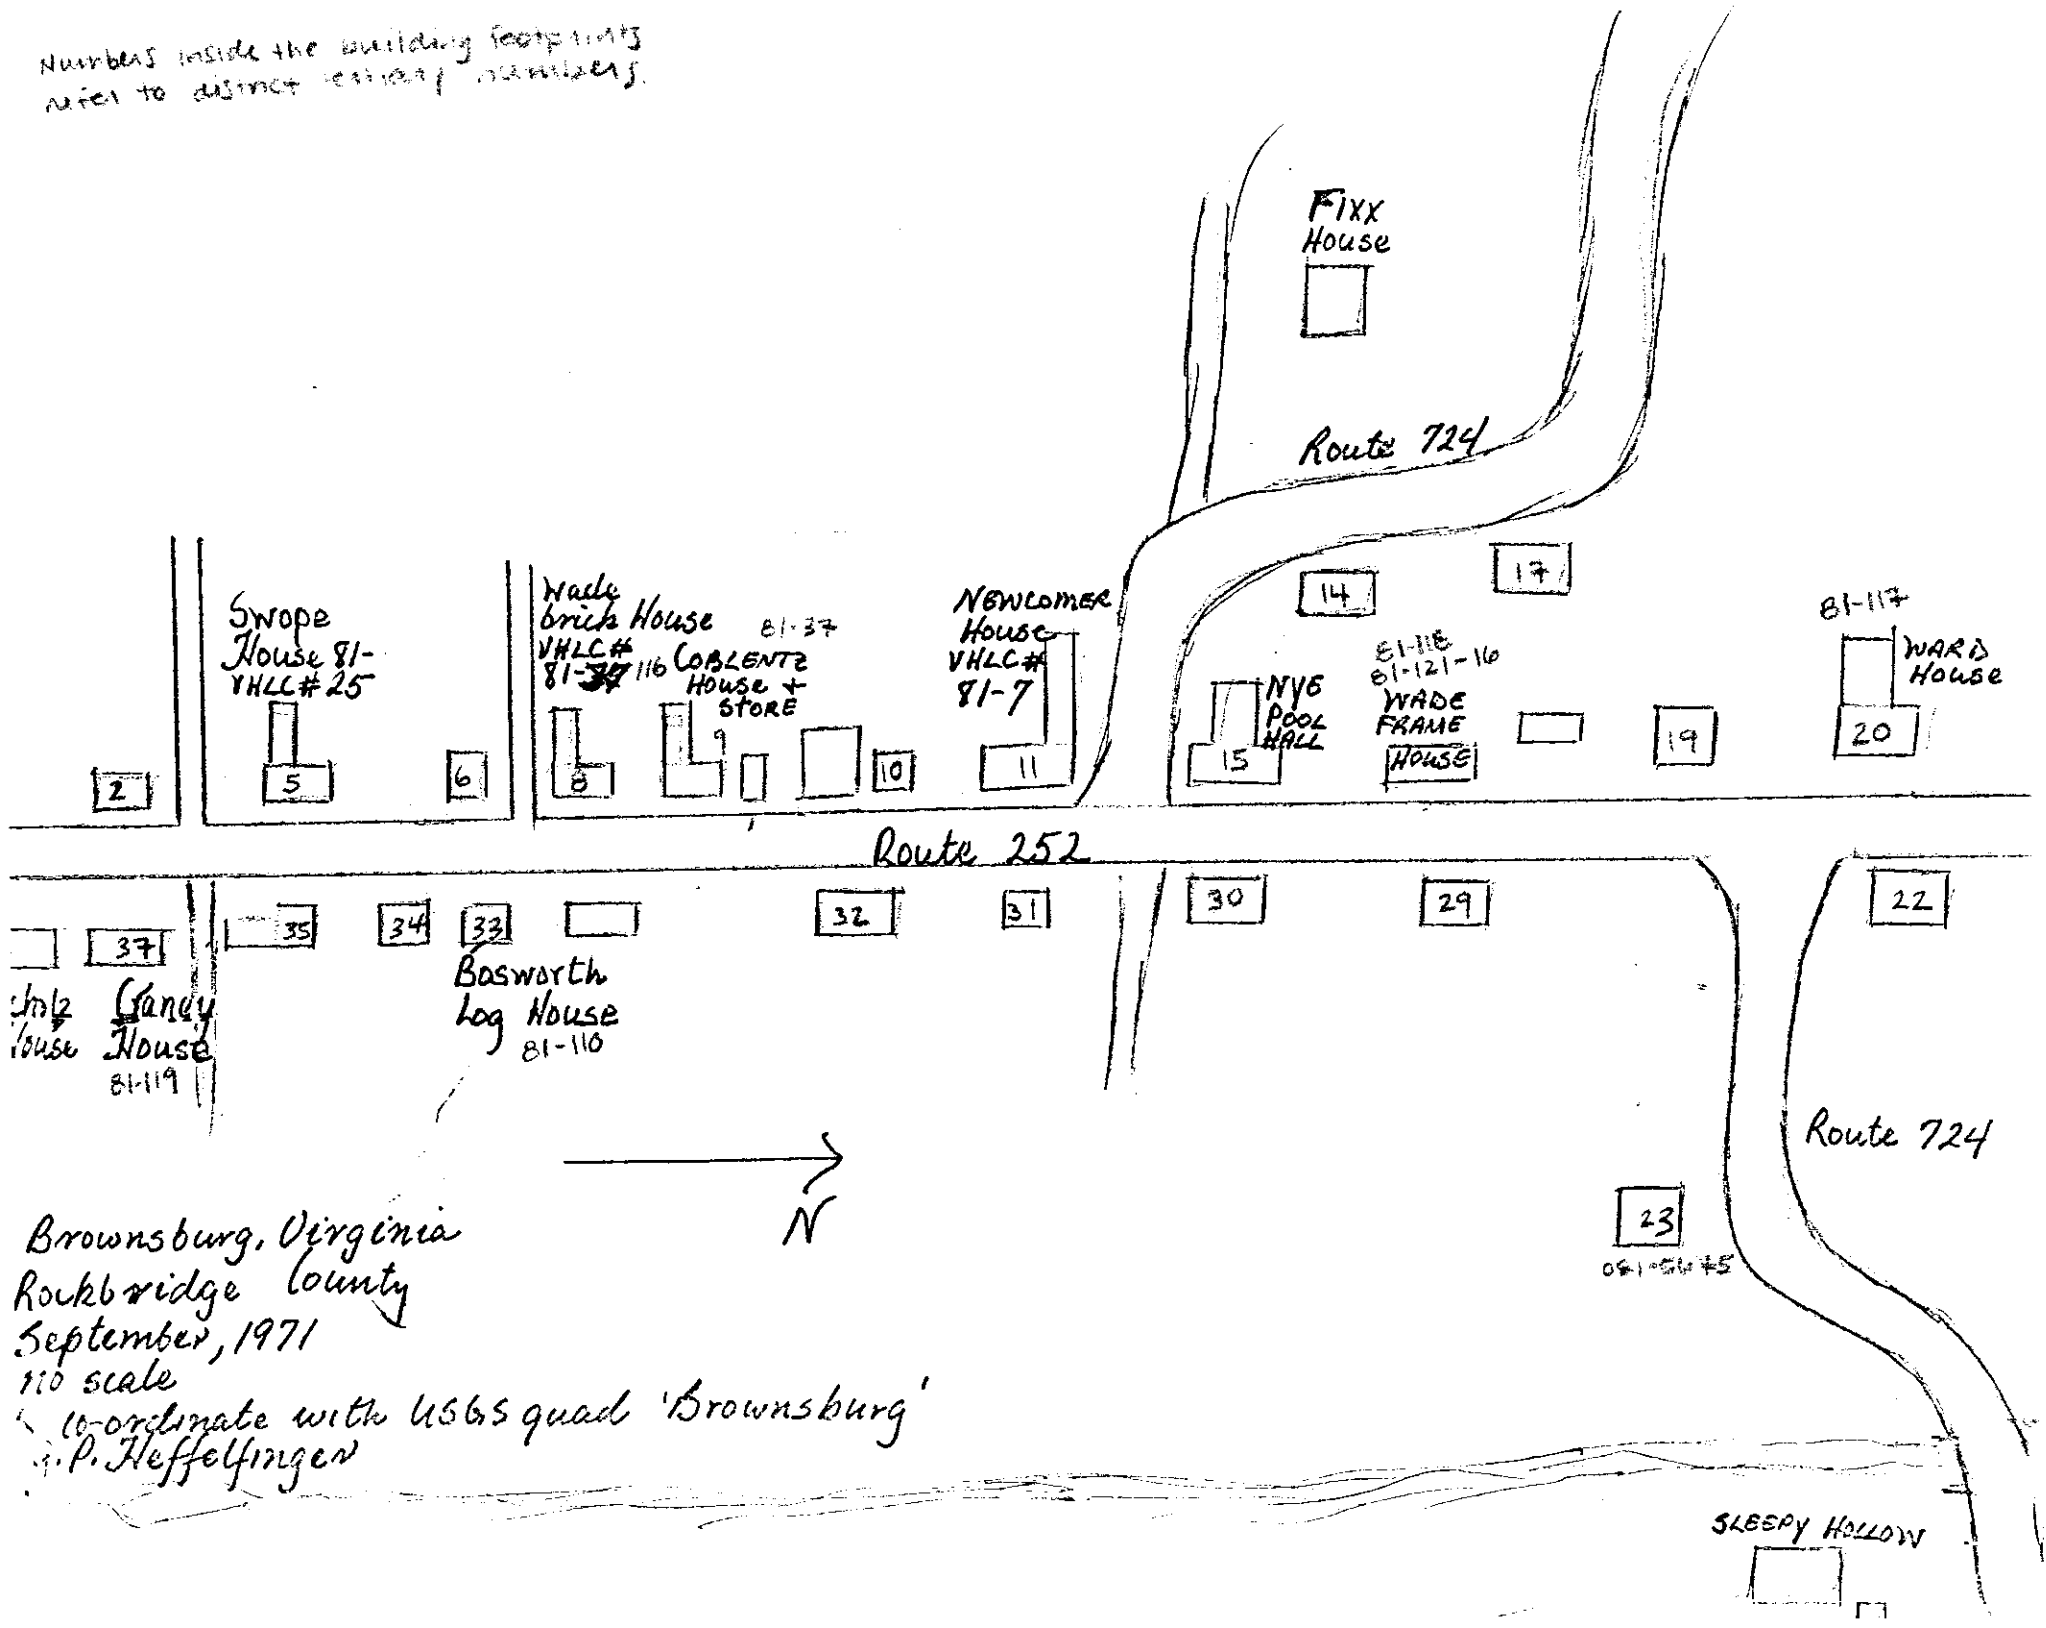 Numbers inside the building footprints
refer to district tertiary numbers.
Fixx
House
Route 724
17
14
Swope
House 81-
VHLC# 25
Wade
brick House
VHLC#
81- 116
81-37
COBLENTZ
House +
STORE
NEWCOMER
House
VHLC#
81-7
NYE
POOL
HALL
81-118
81-121-16
WADE
FRAME
HOUSE
81-117
WARD
House
2
5
6
8
9
10
11
15
19
20
Route 252
37
35
34
33
32
31
30
29
22
Gandy
House
81-119
Bosworth
Log House
81-110
N
Route 724
23
Brownsburg, Virginia
Rockbridge County
September, 1971
no scale
co-ordinate with USGS quad 'Brownsburg'
P. Heffelfinger
SLEEPY HOLLOW